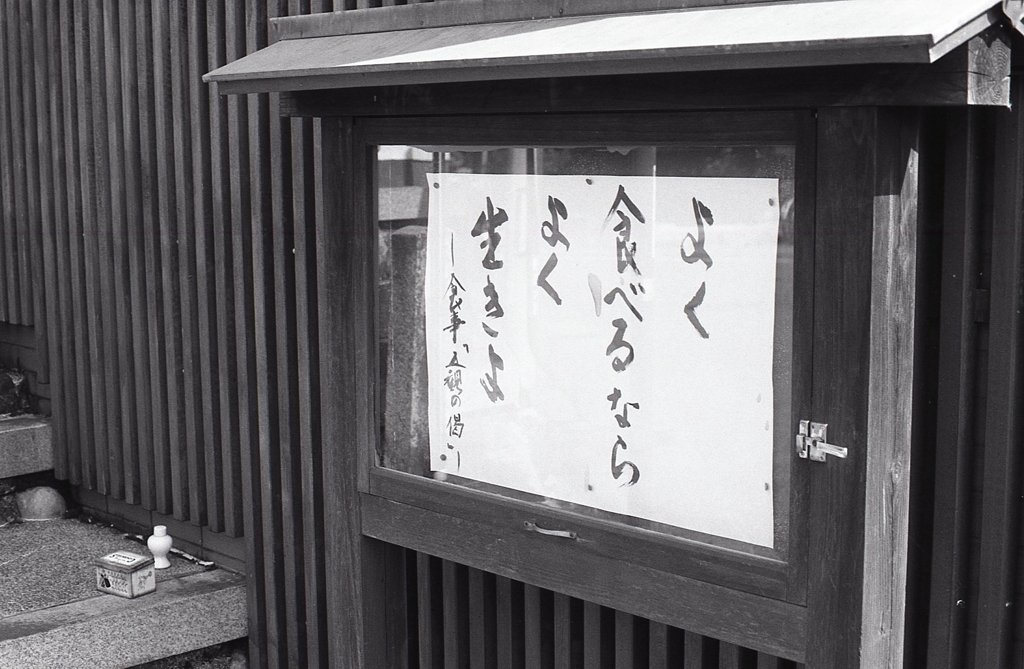 よく
食べるなら
よく
生きよ
―食事「五観の偈」―